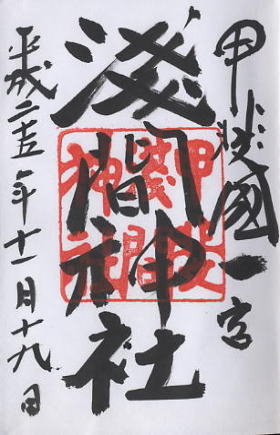 甲斐國一宮
淺間神社
平成二十五年十一月十九日
甲斐
淺間
神社